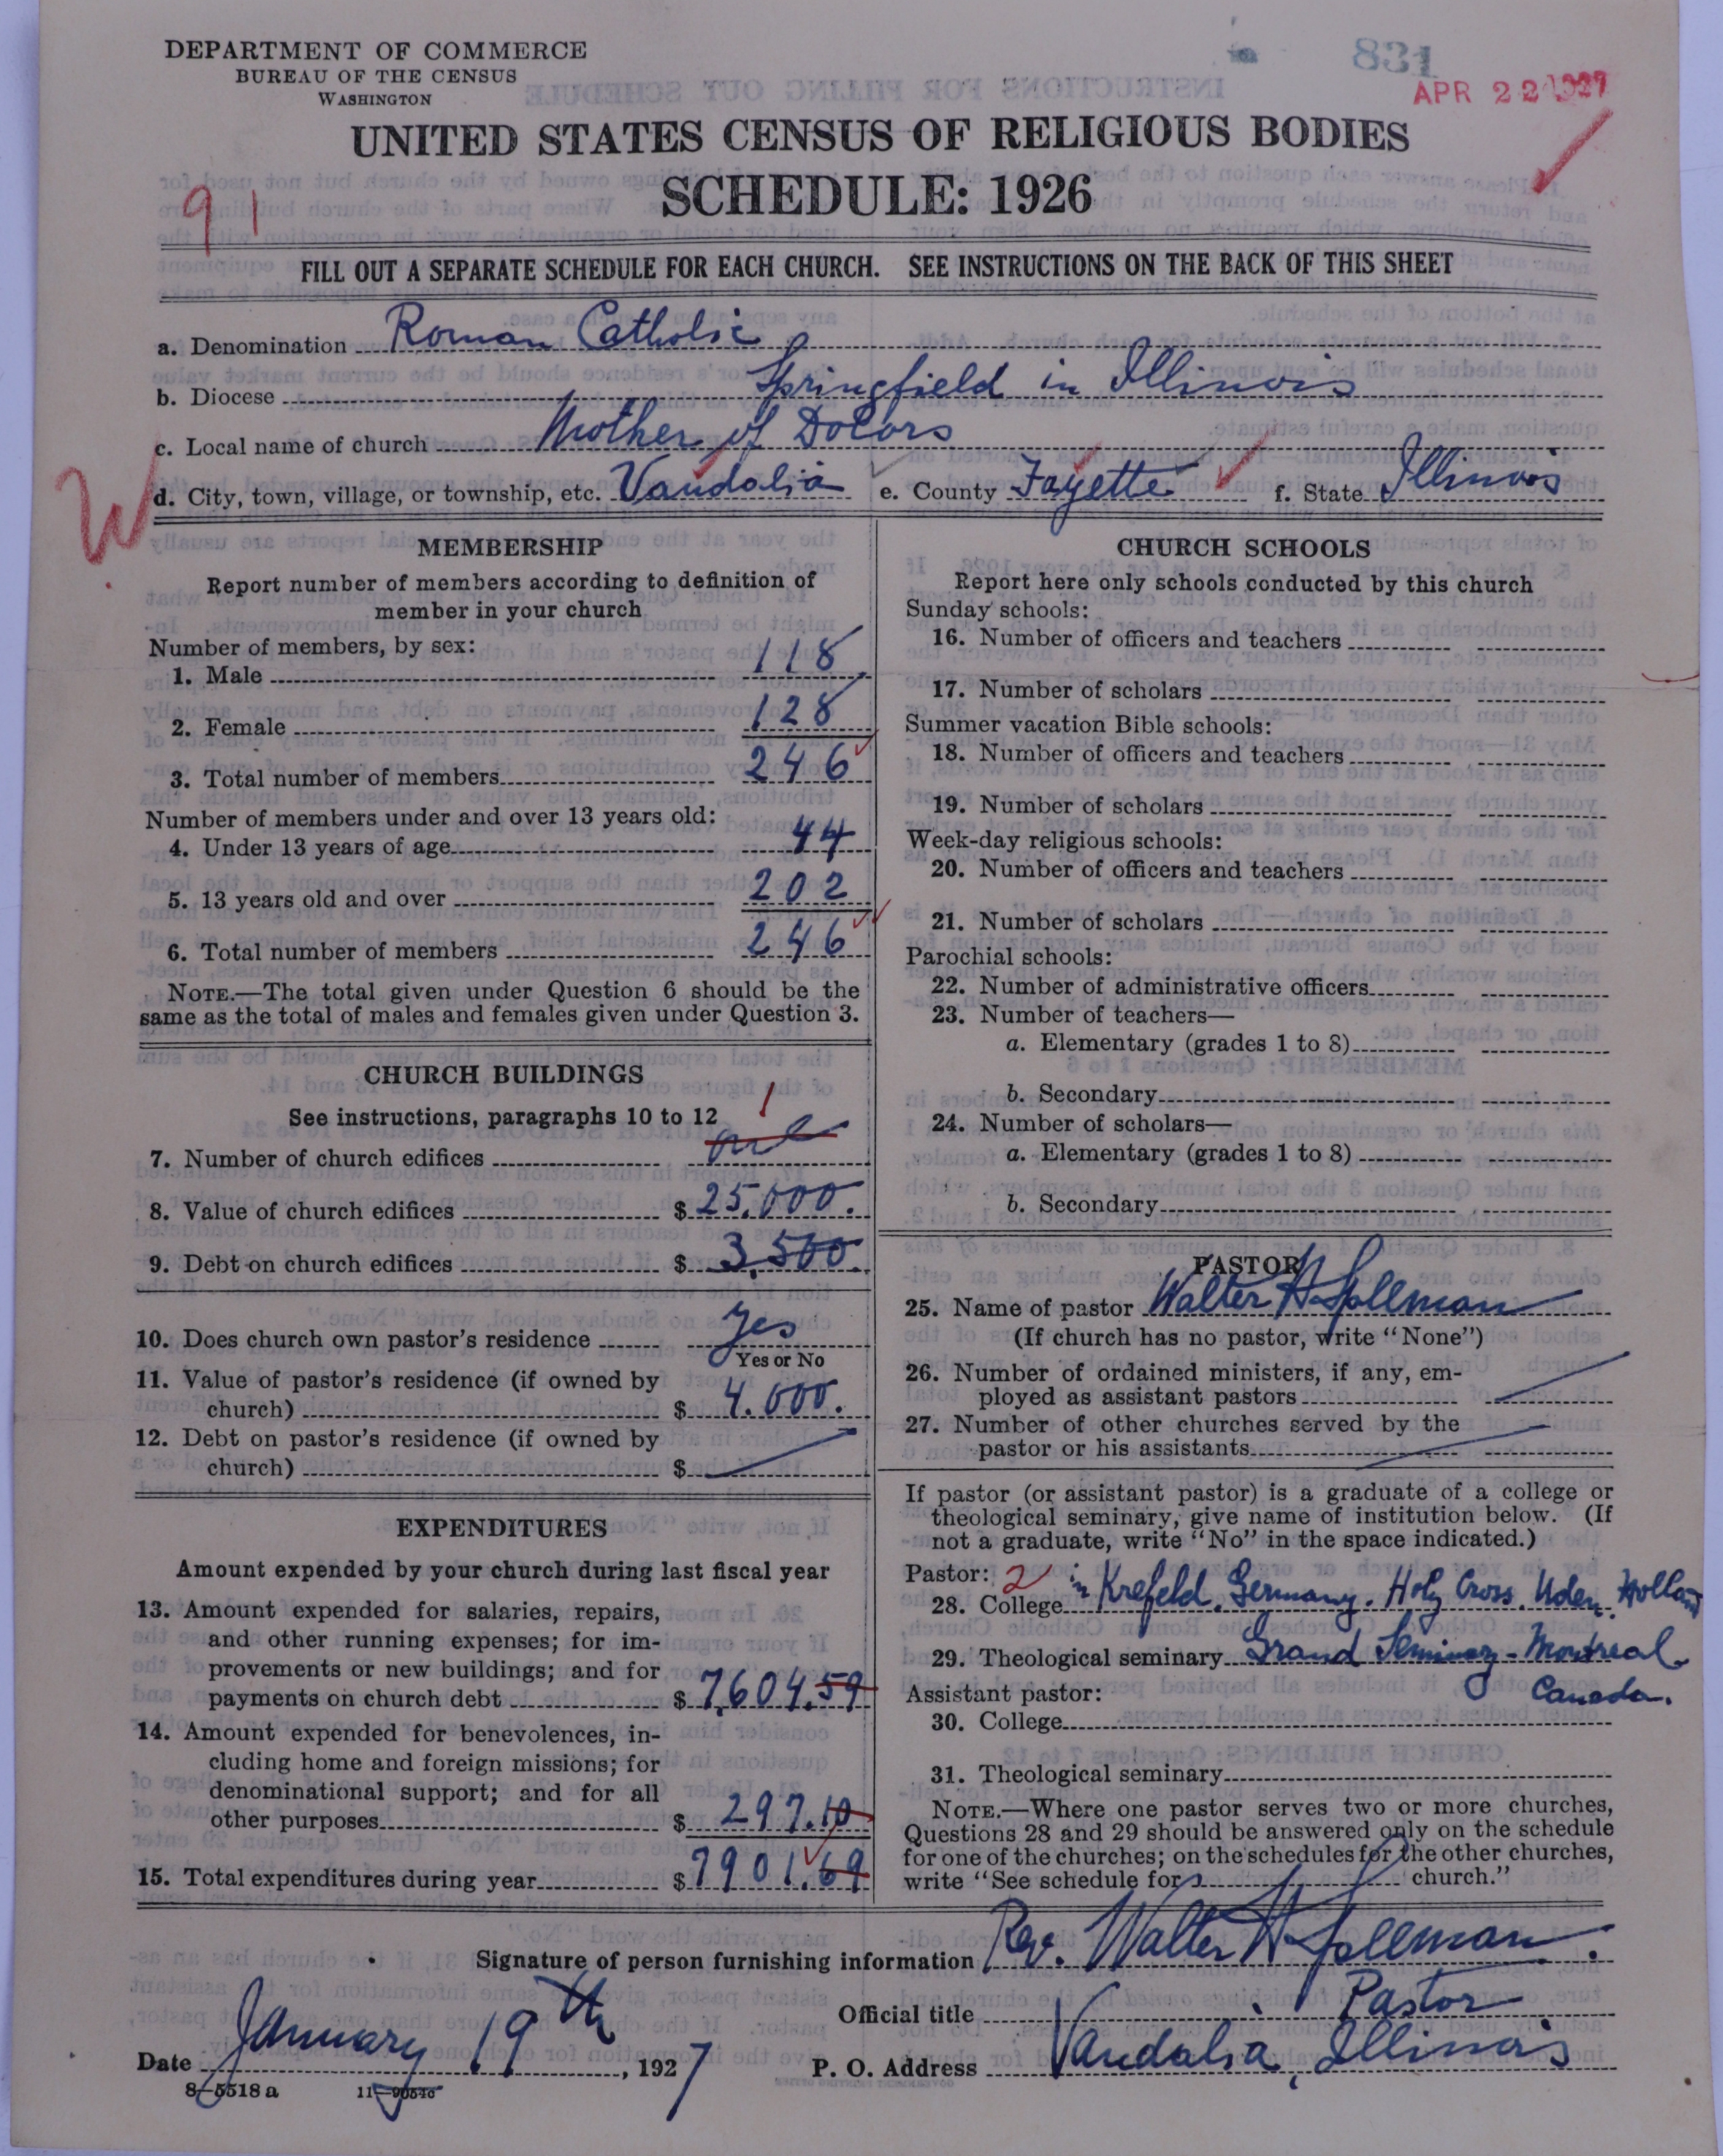 DEPARTMENT OF COMMERCE
BUREAU OF THE CENSUS
WASHINGTON
831
APR 22 1927
UNITED STATES CENSUS OF RELIGIOUS BODIES
SCHEDULE: 1926
91
FILL OUT A SEPARATE SCHEDULE FOR EACH CHURCH. SEE INSTRUCTIONS ON THE BACK OF THIS SHEET
a. Denomination Roman Catholic
b. Diocese Springfield in Illinois
c. Local name of church Mother of Dolors
W
d. City, town, village, or township, etc. Vandalia e. County Fayette f. State Illinois
MEMBERSHIP
Report number of members according to definition of
member in your church
Number of members, by sex:
1. Male 118
2. Female 128
3. Total number of members 246
Number of members under and over 13 years old:
4. Under 13 years of age 44
5. 13 years old and over 202
6. Total number of members 246
NOTE.—The total given under Question 6 should be the
same as the total of males and females given under Question 3.
CHURCH BUILDINGS
See instructions, paragraphs 10 to 12
1
7. Number of church edifices one
8. Value of church edifices $ 25,000.
9. Debt on church edifices $ 3,500.
10. Does church own pastor's residence Yes
Yes or No
11. Value of pastor's residence (if owned by
church) $ 4.000.
12. Debt on pastor's residence (if owned by
church) $
EXPENDITURES
Amount expended by your church during last fiscal year
13. Amount expended for salaries, repairs,
and other running expenses; for im-
provements or new buildings; and for
payments on church debt $ 7,604.59
14. Amount expended for benevolences, in-
cluding home and foreign missions; for
denominational support; and for all
other purposes $ 297.10
15. Total expenditures during year $ 7901.69
CHURCH SCHOOLS
Report here only schools conducted by this church
Sunday schools:
16. Number of officers and teachers
17. Number of scholars
Summer vacation Bible schools:
18. Number of officers and teachers
19. Number of scholars
Week-day religious schools:
20. Number of officers and teachers
21. Number of scholars
Parochial schools:
22. Number of administrative officers
23. Number of teachers—
a. Elementary (grades 1 to 8)
b. Secondary
24. Number of scholars—
a. Elementary (grades 1 to 8)
b. Secondary
PASTOR
25. Name of pastor Walter H Spellman
(If church has no pastor, write "None")
26. Number of ordained ministers, if any, em-
ployed as assistant pastors
27. Number of other churches served by the
pastor or his assistants
If pastor (or assistant pastor) is a graduate of a college or
theological seminary, give name of institution below. (If
not a graduate, write "No" in the space indicated.)
Pastor: 2
28. College in Krefeld, Germany. Holy Cross. Uden. Holland
29. Theological seminary Grand Seminary - Montreal
Canada.
Assistant pastor:
30. College
31. Theological seminary
NOTE.—Where one pastor serves two or more churches,
Questions 28 and 29 should be answered only on the schedule
for one of the churches; on the schedules for the other churches,
write "See schedule for church."
Signature of person furnishing information Rev. Walter H Spellman.
Official title Pastor
Date January 19th, 1927 P. O. Address Vandalia, Illinois
8-5518 a